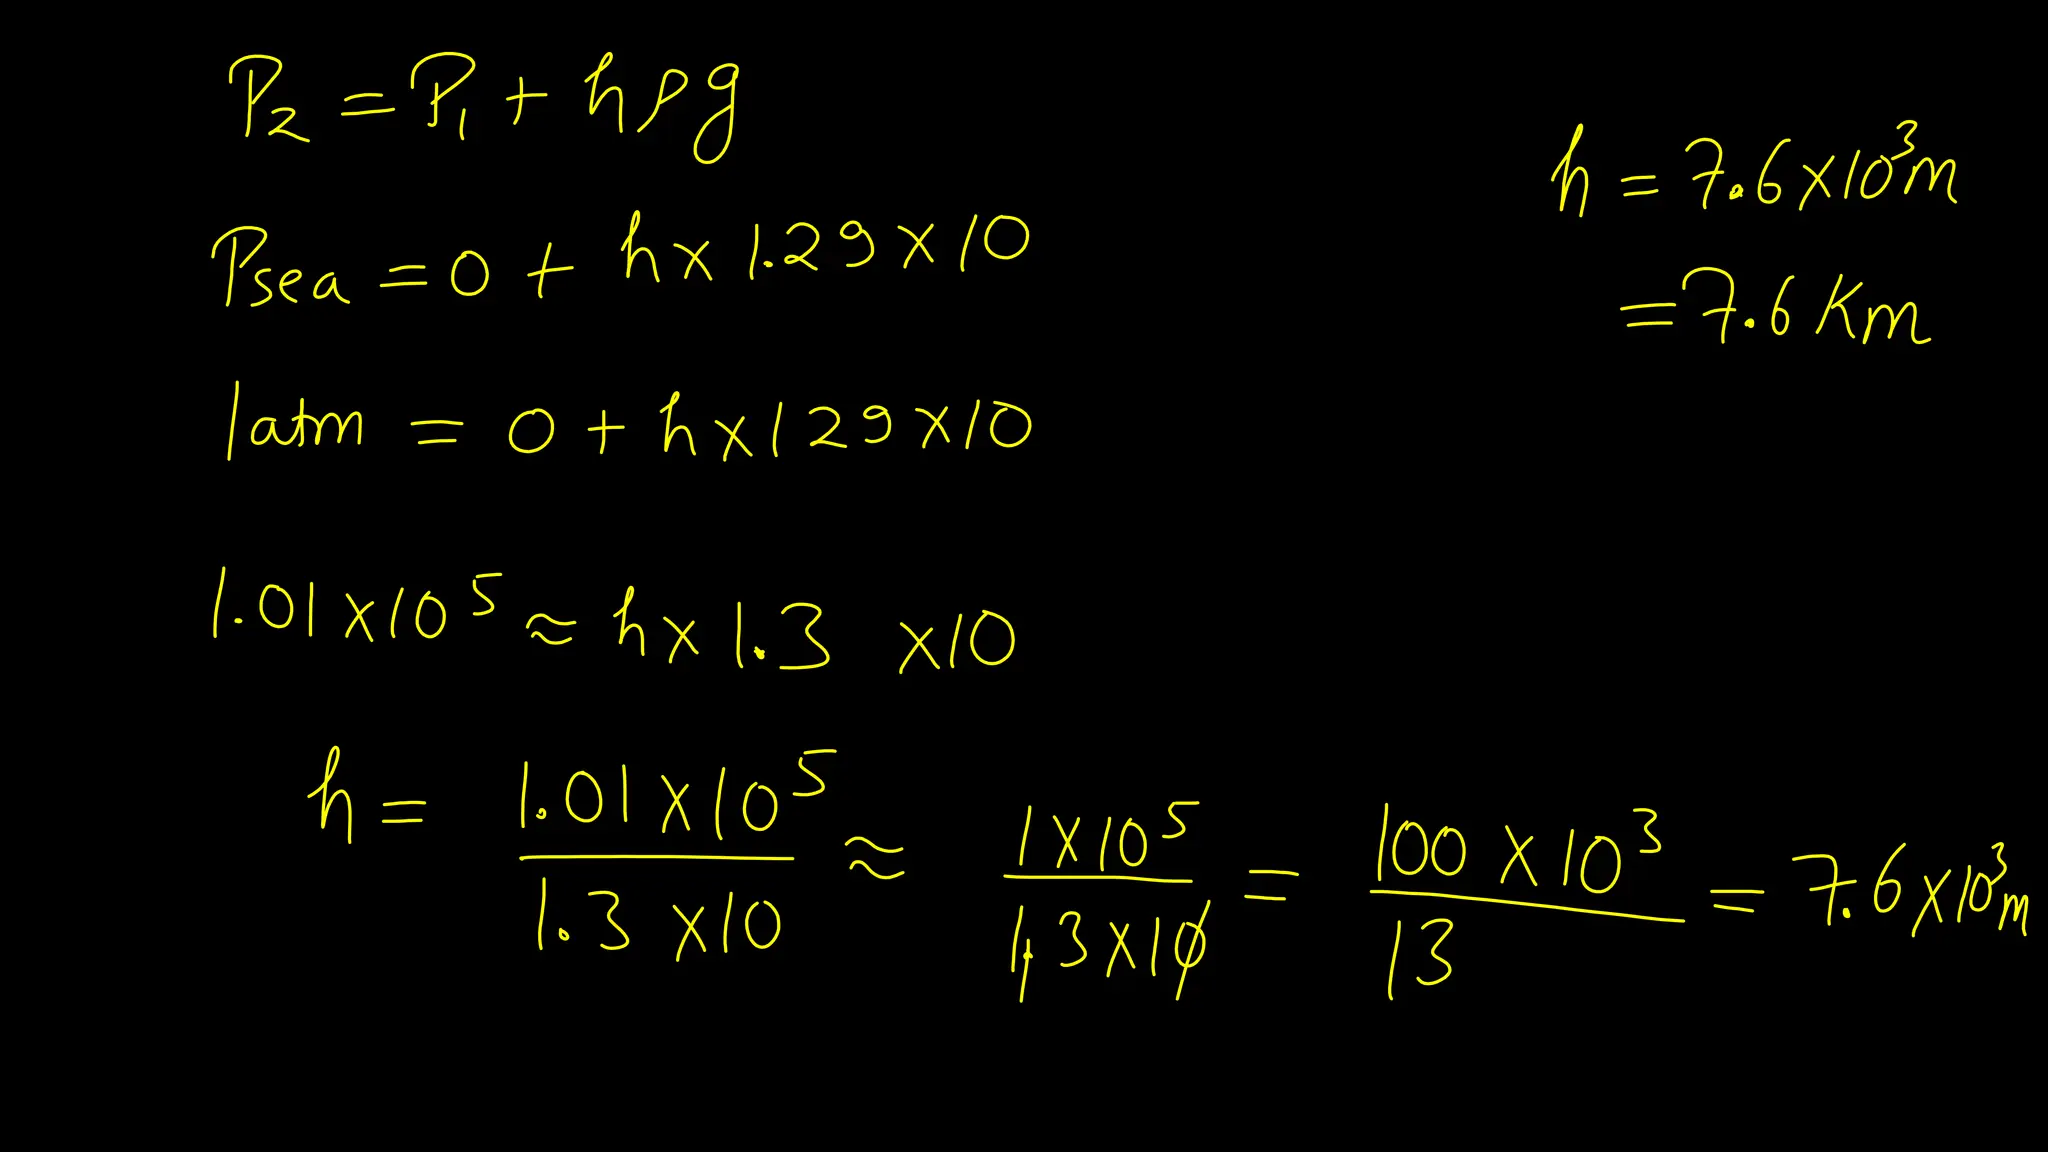 P₂ = P₁ + hρg
Psea = 0 + h × 1.29 × 10
1atm = 0 + h × 129 × 10
1.01 × 10⁵ ≈ h × 1.3 × 10
h = (1.01 × 10⁵)/(1.3 × 10) ≈ (1 × 10⁵)/(1.3 × 10) = (100 × 10³)/13 = 7.6 × 10³ m
h = 7.6 × 10³ m
= 7.6 Km